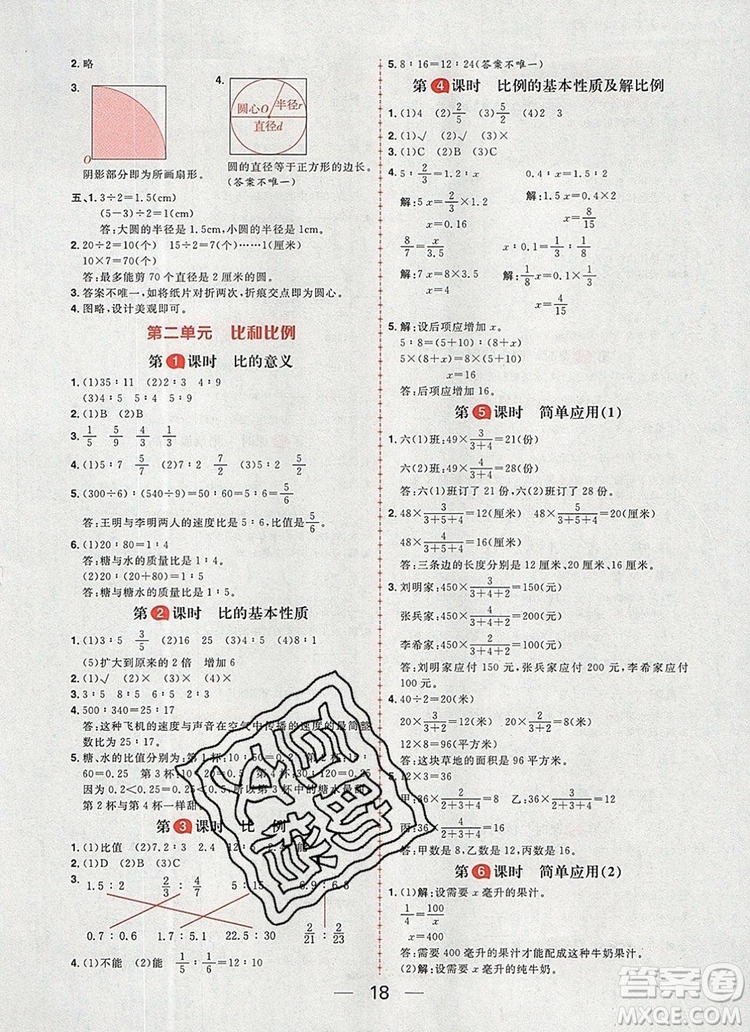 2. 略
3.
4.
圆心O 半径r
直径d
O
阴影部分即为所画扇形。
圆的直径等于正方形的边长。
(答案不唯一)
五、1. 3÷2=1.5(cm)
(5-3)÷2=1(cm)
答:大圆的半径是 1.5cm,小圆的半径是 1cm。
2. 20÷2=10(个) 15÷2=7(个)……1(厘米)
10×7=70(个)
答:最多能剪 70 个直径是 2 厘米的圆。
3. 答案不唯一,如将纸片对折两次,折痕交点即为圆心。
4. 图略,设计美观即可。
第二单元 比和比例
第1课时 比的意义
1. (1)35∶11 (2)2∶3 4∶9
(3)4∶5 5∶4 5∶9 4∶9
2. (1)D (2)B
3. 1/5 5/9 1/9 4/5
4. (1)5∶7 5/7 (2)6∶5 6/5
5. (300÷6)∶(540÷9)=50∶60=5∶6
答:王明与李明两人的速度比是 5∶6,比值是5/6。
6. (1)20∶(100-20)=20∶80=1∶4
答:糖与水的质量比是 1∶4。
(2)20∶(20+80)=1∶5
答:糖与糖水的质量比是 1∶5。
第2课时 比的基本性质
1. (1)3∶5 3/5 (2)15 (3)6 (4)8∶1
(5)扩大到原来的 2 倍 增加 6
2. (1)√ (2)× (3)× (4)×
3. 3∶4 2∶3 5∶6 9∶8
4. 500∶340=25∶17
答:这种飞机的速度与声音在空气中传播的速度的最简整
数比为 25∶17。
5. 糖、水的比值分别为:第 1 杯:10∶
60=0.25 第 3 杯:
因为 0.2<0.25,所以第3杯中的糖水最甜。
第 2 杯与第 4 杯一样甜。
第3课时 比 例
1. (1)比值 (2)7.2∶3 2∶4
2. (1)D (2)B (3)C
3. 1.5∶2 2/3∶4/7 1.7∶5.1 6.9∶6.8
0.7∶0.6 1.7∶5.1 22.5∶30 2/21∶2/23
4. (1)不能 (2)能 1/5∶1/6=6∶5
5. 8∶16=12∶24(答案不唯一)
第4课时 比例的基本性质及解比例
1. (1)4 (2)2/5 (3)5/2 (4)2 3
2. (1)√ (2)√ (3)×
3. (1)C (2)C
4. 5∶2/3=1.2∶x 0.4∶x=1.2∶2/3
解:5x=2/3×1.2 解:1.2x=0.4×2/3
x=0.16 x=8/15
8/7=x/3.5 x∶0.1=8/15∶1/5
解:7x=8×3.5 解:1/5x=0.1×8/15
x=4 x=4/15
5. 解:设后项应增加 x。
5∶8=(5+10)∶(8+x)
5×(8+x)=8×(5+10)
x=16
答:后项应增加 16。
第5课时 简单应用(1)
1. 六(1)班:49×3/(3+4)=21(份)
六(2)班:49×4/(3+4)=28(份)
答:六(1)班订了 21 份,六(2)班订了 28 份。
2. 48×3/(3+5+4)=12(厘米) 48×5/(3+5+4)=20(厘米)
48×4/(3+5+4)=16(厘米)
答:三条边的长度分别是 12 厘米、20 厘米、16 厘米。
3. 刘明家:450×3/(3+4+2)=150(元)
张兵家:450×4/(3+4+2)=200(元)
李希家:450×2/(3+4+2)=100(元)
答:刘明家应付 150 元,张兵家应付 200 元,李希家应付
100 元。
4. 40÷2=20(米)
20×3/(3+2)=12(米) 20×2/(3+2)=8(米)
12×8=96(平方米)
答:这块草地的面积是 96 平方米。
5. 12×3=36
甲:36×2/(2+3+4)=8 乙:36×3/(2+3+4)=12
丙:36×4/(2+3+4)=16
答:甲数是 8,乙数是 12,丙数是 16。
第6课时 简单应用(2)
1. (1)解:设需要 x 毫升的果汁。
1/4=100/x
x=400
答:需要 400 毫升的果汁才能配成这种牛奶果汁。
(2)解:设需要 x 毫升的纯牛奶。
18
答案圈
MXQE.COM